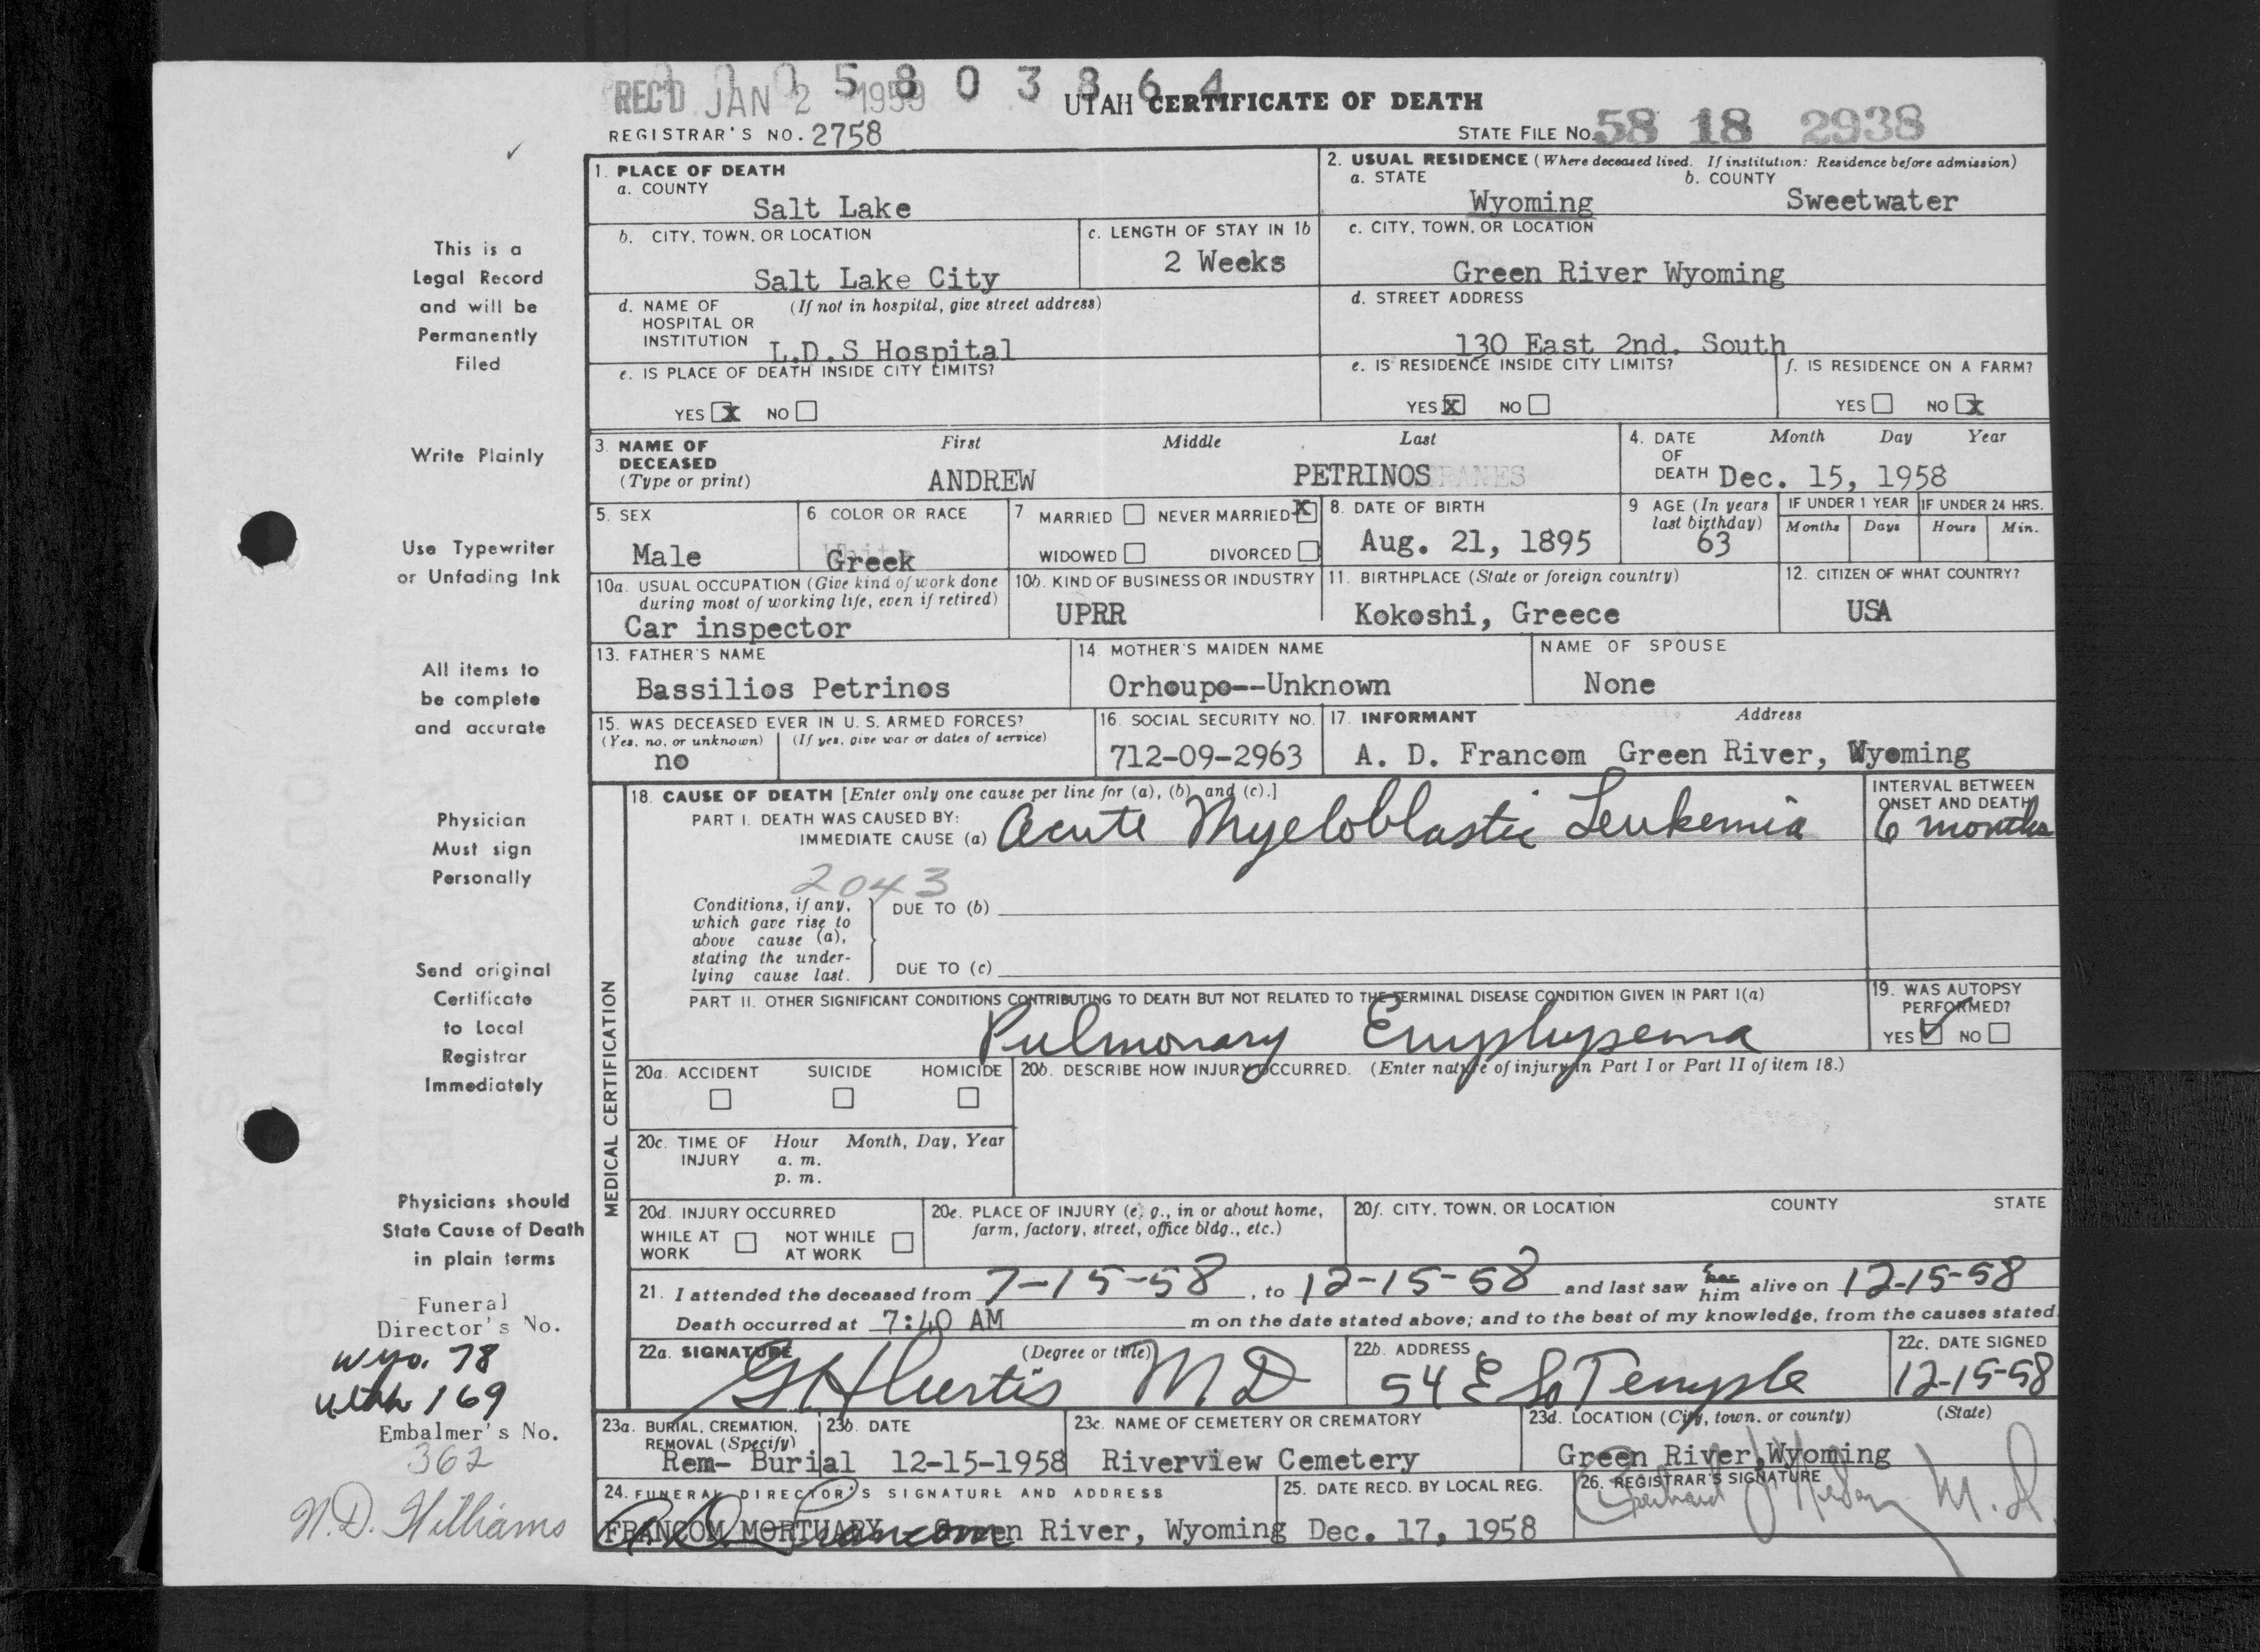 0 0 0 5 8 0 3 8 6 4
REC'D JAN 2 1959
UTAH CERTIFICATE OF DEATH
REGISTRAR'S NO. 2758
STATE FILE NO. 58 18 2938
1. PLACE OF DEATH
a. COUNTY
Salt Lake
2. USUAL RESIDENCE (Where deceased lived. If institution: Residence before admission)
a. STATE b. COUNTY
Wyoming Sweetwater
b. CITY, TOWN, OR LOCATION
Salt Lake City
c. LENGTH OF STAY IN 1b
2 Weeks
c. CITY, TOWN, OR LOCATION
Green River Wyoming
d. NAME OF (If not in hospital, give street address)
HOSPITAL OR
INSTITUTION L.D.S Hospital
d. STREET ADDRESS
130 East 2nd. South
e. IS PLACE OF DEATH INSIDE CITY LIMITS?
YES X NO
e. IS RESIDENCE INSIDE CITY LIMITS?
YES X NO
f. IS RESIDENCE ON A FARM?
YES NO X
3. NAME OF DECEASED (Type or print)
First Middle Last
ANDREW PETRINOS
4. DATE OF DEATH
Month Day Year
Dec. 15, 1958
5. SEX
Male
6 COLOR OR RACE
Greek
7 MARRIED NEVER MARRIED X
WIDOWED DIVORCED
8. DATE OF BIRTH
Aug. 21, 1895
9 AGE (In years last birthday)
63
IF UNDER 1 YEAR
Months Days
IF UNDER 24 HRS.
Hours Min.
10a. USUAL OCCUPATION (Give kind of work done
during most of working life, even if retired)
Car inspector
10b. KIND OF BUSINESS OR INDUSTRY
UPRR
11. BIRTHPLACE (State or foreign country)
Kokoshi, Greece
12. CITIZEN OF WHAT COUNTRY?
USA
13. FATHER'S NAME
Bassilios Petrinos
14. MOTHER'S MAIDEN NAME
Orhoupo--Unknown
NAME OF SPOUSE
None
15. WAS DECEASED EVER IN U. S. ARMED FORCES?
(Yes, no, or unknown) (If yes, give war or dates of service)
no
16. SOCIAL SECURITY NO.
712-09-2963
17. INFORMANT Address
A. D. Francom Green River, Wyoming
MEDICAL CERTIFICATION
18. CAUSE OF DEATH [Enter only one cause per line for (a), (b), and (c).]
PART I. DEATH WAS CAUSED BY:
IMMEDIATE CAUSE (a) Acute Myeloblastic Leukemia
INTERVAL BETWEEN
ONSET AND DEATH
6 months
2043
Conditions, if any,
which gave rise to
above cause (a),
stating the under-
lying cause last.
DUE TO (b)
DUE TO (c)
PART II. OTHER SIGNIFICANT CONDITIONS CONTRIBUTING TO DEATH BUT NOT RELATED TO THE TERMINAL DISEASE CONDITION GIVEN IN PART I(a)
Pulmonary Emphysema
19. WAS AUTOPSY
PERFORMED?
YES ✓ NO
20a. ACCIDENT SUICIDE HOMICIDE
20b. DESCRIBE HOW INJURY OCCURRED. (Enter nature of injury in Part I or Part II of item 18.)
20c. TIME OF INJURY
Hour Month, Day, Year
a. m.
p. m.
20d. INJURY OCCURRED
WHILE AT WORK NOT WHILE AT WORK
20e. PLACE OF INJURY (e. g., in or about home,
farm, factory, street, office bldg., etc.)
20f. CITY, TOWN, OR LOCATION COUNTY STATE
21. I attended the deceased from 7-15-58, to 12-15-58 and last saw her him alive on 12-15-58
Death occurred at 7:40 AM m on the date stated above; and to the best of my knowledge, from the causes stated.
22a. SIGNATURE (Degree or title)
G H Curtis M D
22b. ADDRESS
54 E So Temple
22c. DATE SIGNED
12-15-58
23a. BURIAL, CREMATION,
REMOVAL (Specify)
Rem- Burial
23b. DATE
12-15-1958
23c. NAME OF CEMETERY OR CREMATORY
Riverview Cemetery
23d. LOCATION (City, town, or county) (State)
Green River, Wyoming
24. FUNERAL DIRECTOR'S SIGNATURE AND ADDRESS
FRANCOM MORTUARY Green River, Wyoming
A. D. Francom
25. DATE RECD. BY LOCAL REG.
Dec. 17, 1958
26. REGISTRAR'S SIGNATURE
M. D.
This is a
Legal Record
and will be
Permanently
Filed
Write Plainly
Use Typewriter
or Unfading Ink
All items to
be complete
and accurate
Physician
Must sign
Personally
Send original
Certificate
to Local
Registrar
Immediately
Physicians should
State Cause of Death
in plain terms
Funeral
Director's No.
Wyo. 78
Utah 169
Embalmer's No.
362
N. D. Williams